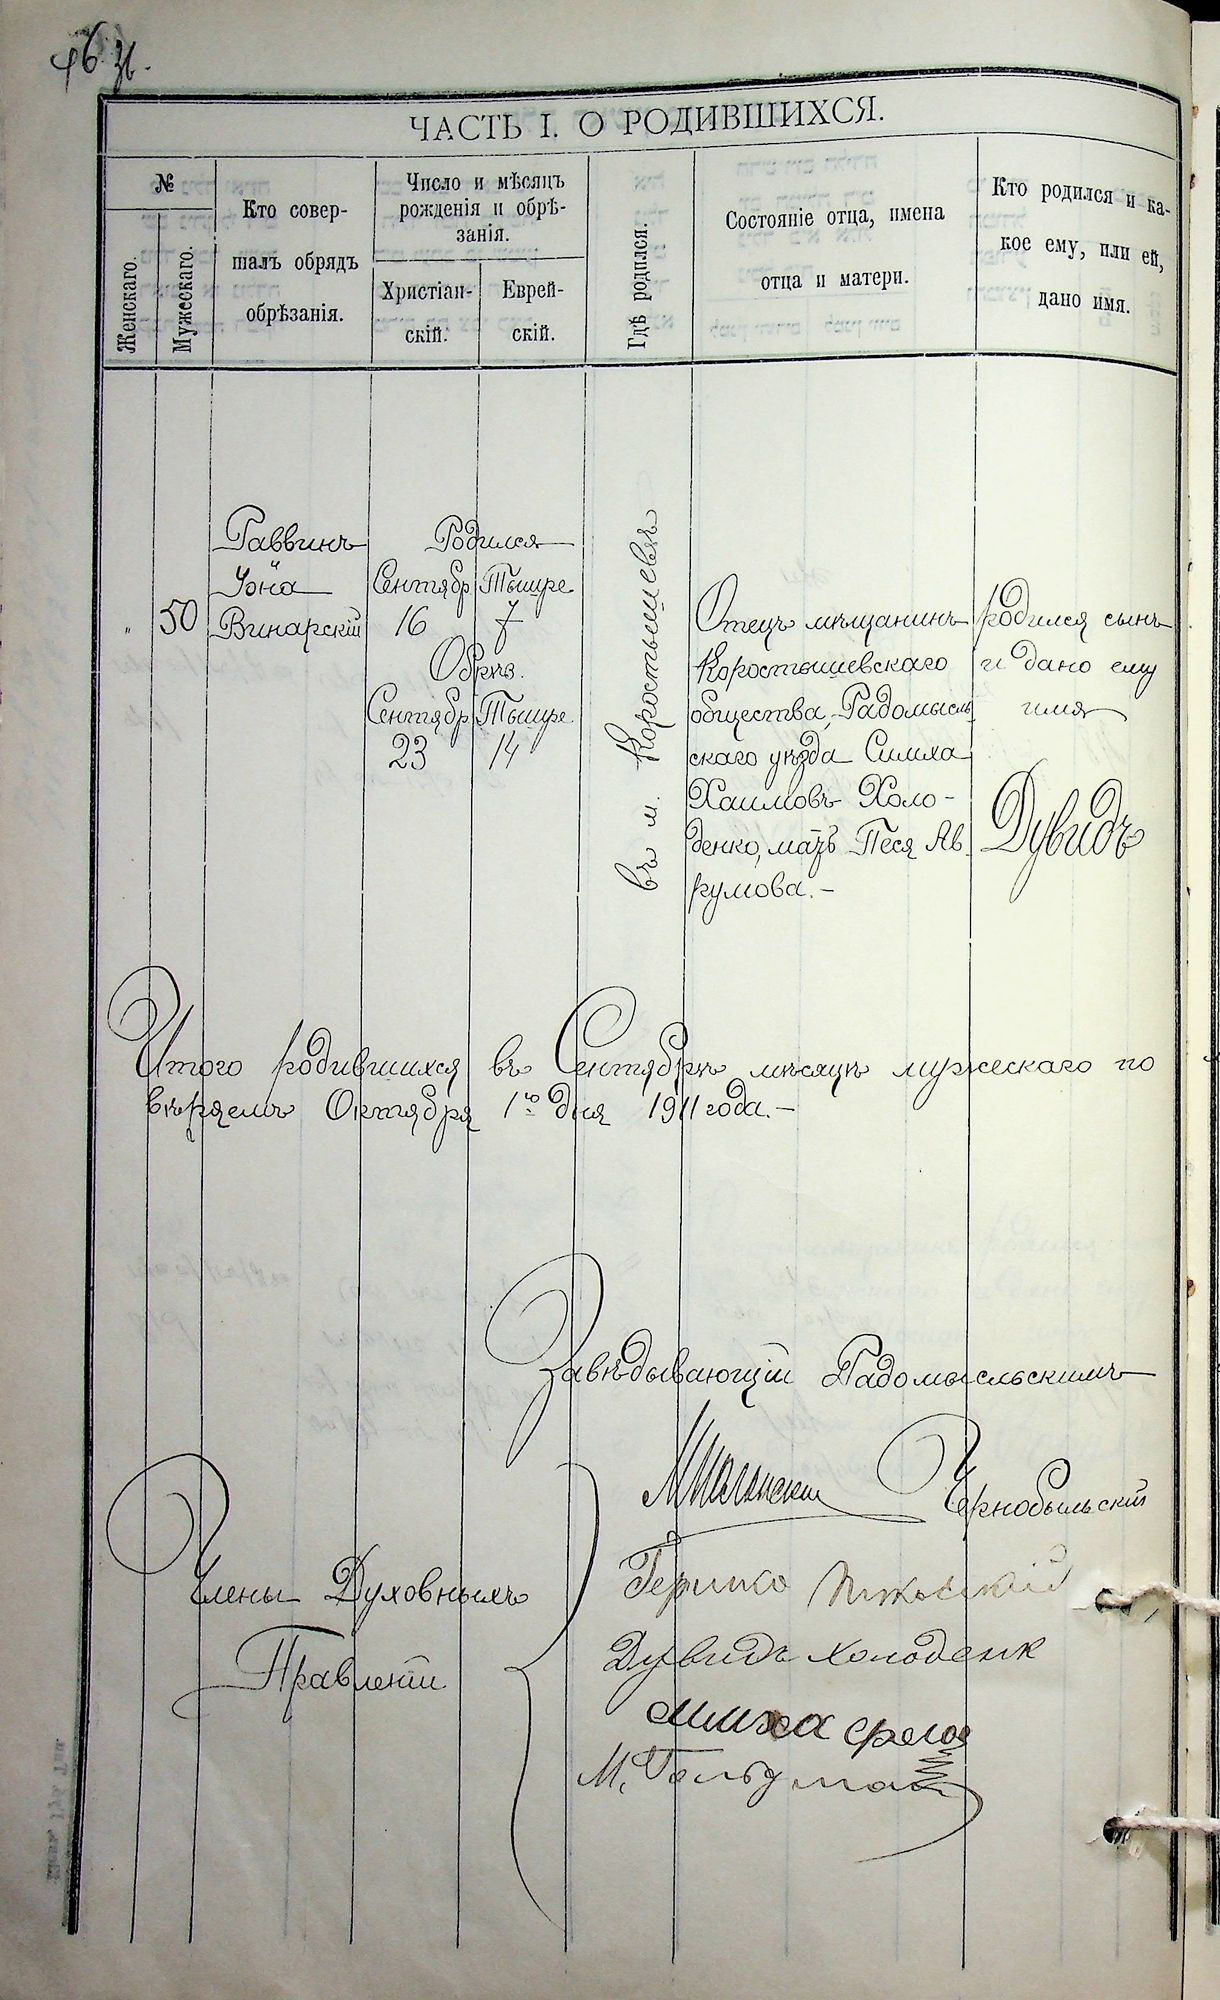 ЧАСТЬ I. О РОДИВШИХСЯ.
№
Женскаго.
Мужескаго.
Кто совер-
шалъ обрядъ
обрѣзанія.
Число и мѣсяцъ
рожденія и обрѣ-
занія.
Христіан-
скій.
Еврей-
скій.
Гдѣ родился.
Состояніе отца, имена
отца и матери.
Кто родился и ка-
кое ему, или ей,
дано имя.
"
50
Раввинъ
Іона
Винарскій
Родился
Сентябр Тышре
16 7
Обрѣз.
Сентябр Тышре
23 14
въ м. Коростышевѣ
Отецъ мѣщанинъ
Коростышевскаго
общества, Радомысль
скаго уѣзда Симха
Хаимовъ Холо-
денко, мать Песя Ав
румова.-
родился сынъ
и дано ему
имя
Дувидъ
Итого родившихся въ Сентябрѣ мѣсяцѣ мужескаго по
вѣряемъ Октября 1го дня 1911 года.-
Завѣдывающій Радомысльскимъ
Чернобыльскій
Члены Духовныхъ
Правленій
Гершко
Дувидъ Холоденк
М. Гольдман